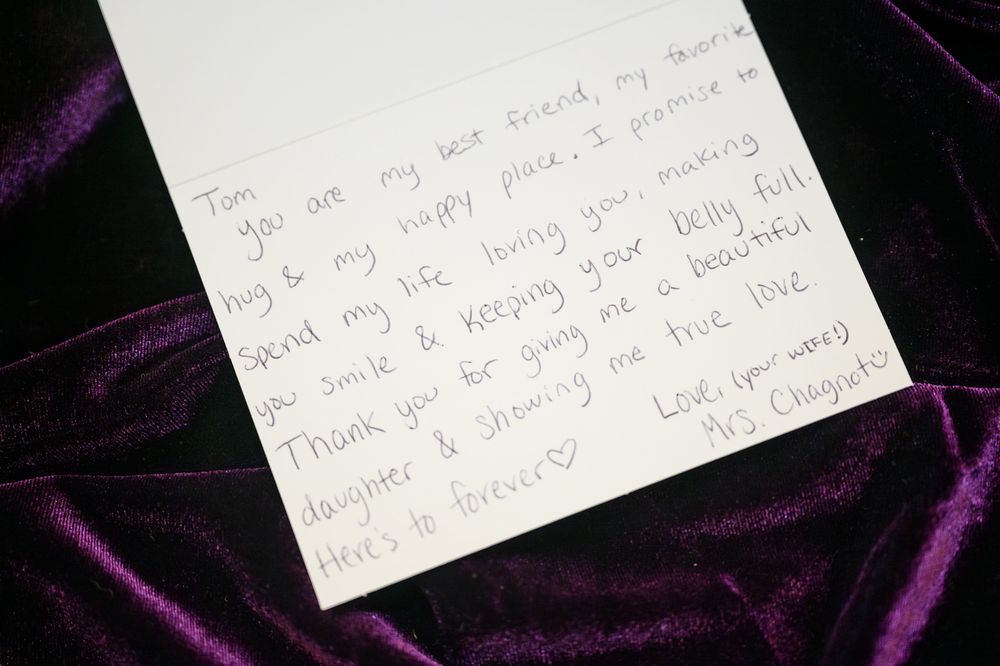 Tom
you are my best friend, my favorite
hug & my happy place. I promise to
spend my life loving you, making
you smile & keeping your belly full.
Thank you for giving me a beautiful
daughter & showing me true love.
Here's to forever♡
Love, (your WIFE!)
Mrs. Chagnot☺